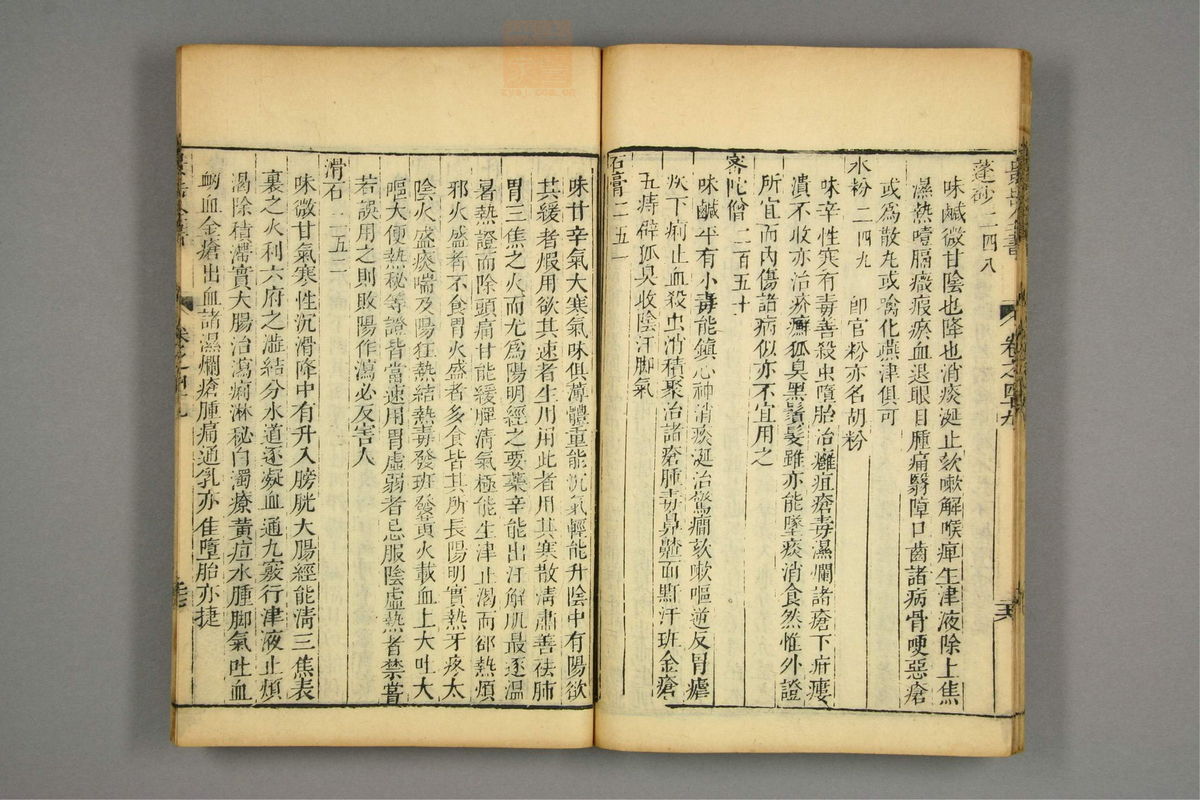 蓬莎二四八
味鹹微甘陰也降也消痰涎止欬嗽解喉痺生津液除上焦
濕熱噎膈癥瘕瘀血退眼目腫痛翳障口齒諸病骨哽惡瘡
或爲散丸或噙化嚥津俱可
水粉二四九 卽官粉亦名胡粉
味辛性寒有毒善殺虫墮胎治癰疽瘡毒濕爛諸瘡下疳瘻
潰不收亦治疥癬狐臭黑鬚髮雖亦能墜痰消食然惟外證
所宜而內傷諸病似亦不宜用之
密陀僧二百五十
味鹹平有小毒能鎮心神消痰涎治驚癇欬嗽嘔逆反胃瘧
疾下痢止血殺虫消積聚治諸瘡腫毒鼻齄面䵟汗班金瘡
五痔僻狐臭收陰汗脚氣
石膏二五一
味甘辛氣大寒氣味俱薄體重能沉氣輕能升陰中有陽欲
其緩者煆用欲其速者生用用此者用其寒散清肅善祛肺
胃三焦之火而尤爲陽明經之要藥辛能出汗解肌最逐溫
暑熱證而除頭痛甘能緩脾清氣極能生津止渴而郤熱煩
邪火盛者不食胃火盛者多食皆其所長陽明實熱牙疼太
陰火盛痰喘及陽狂熱結熱毒發班發黃火載血上大吐大
嘔大便熱秘等證皆當速用胃虛弱者忌服陰虛熱者禁嘗
若誤用之則敗陽作瀉必反害人
滑石二五二
味微甘氣寒性沉滑降中有升入膀胱大腸經能清三焦表
裏之火利六府之澁結分水道逐凝血通九竅行津液止煩
渴除積滯實大腸治瀉痢淋秘白濁療黃疸水腫脚氣吐血
衂血金瘡出血諸濕爛瘡腫痛通乳亦佳墮胎亦捷
卷之四十九